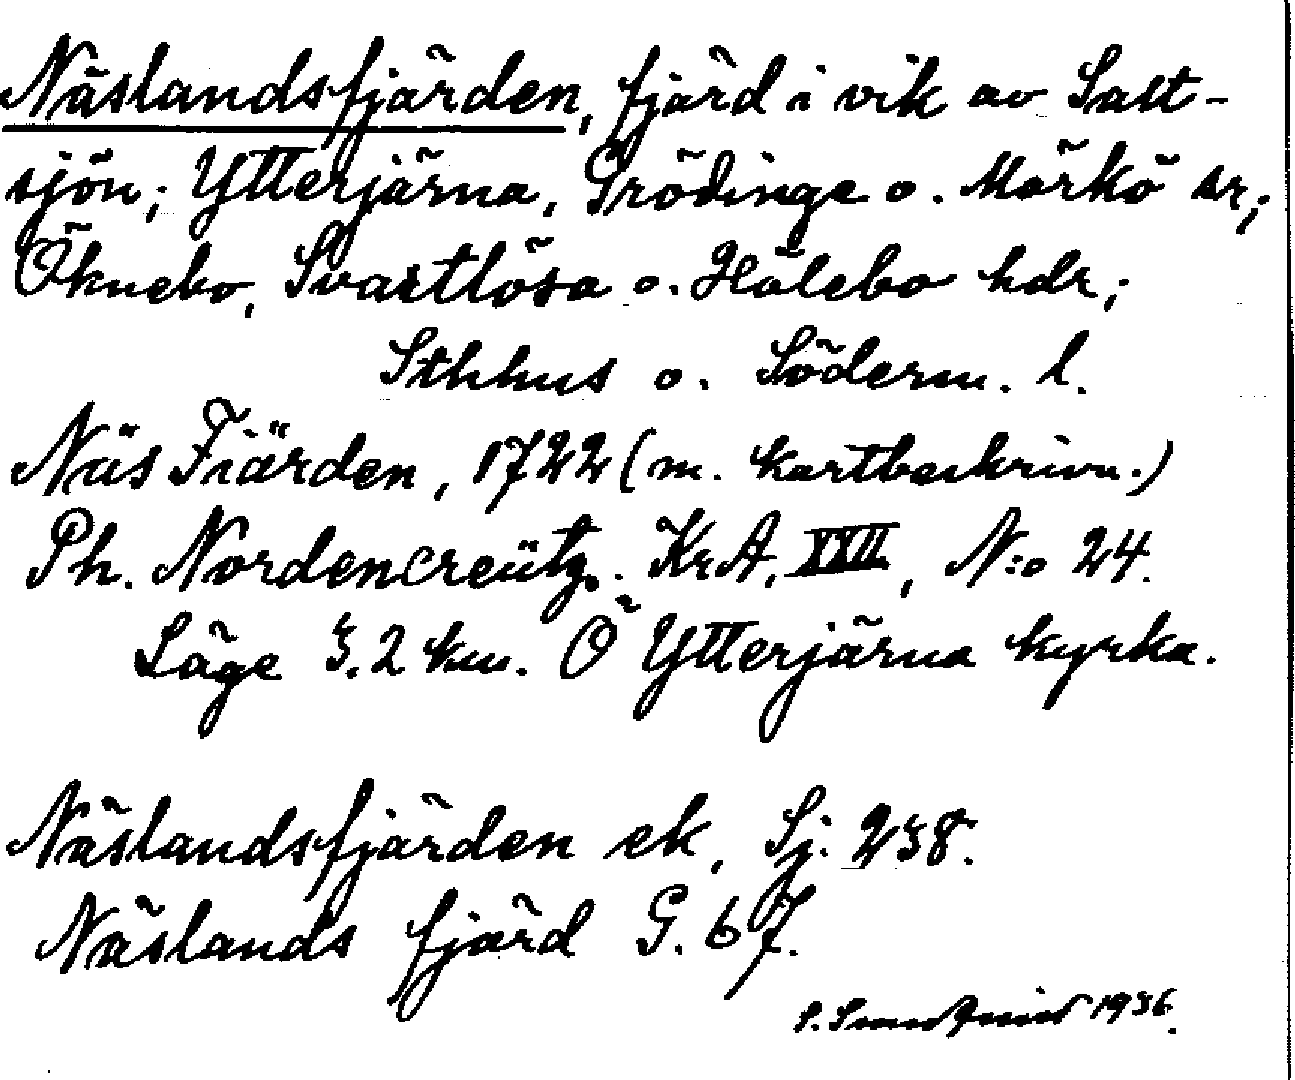 Näslandsfjärden, fjärd i vik av Salt-
sjön; Ytterjärna, Grödinge o. Mörkö sr;
Öknebo, Svartlösa o. Hölebo hdr;
Sthhus o. Söderm. l.
Näs Fiärden, 1722 (m. kartbeskrivn.)
Ph. Nordencreütz. KrA, XVII, N:o 24.
Läge 3.2 km. Ö Ytterjärna kyrka.
Näslandsfjärden ek, Sj. 238.
Näslands fjärd G. 67.
1936.